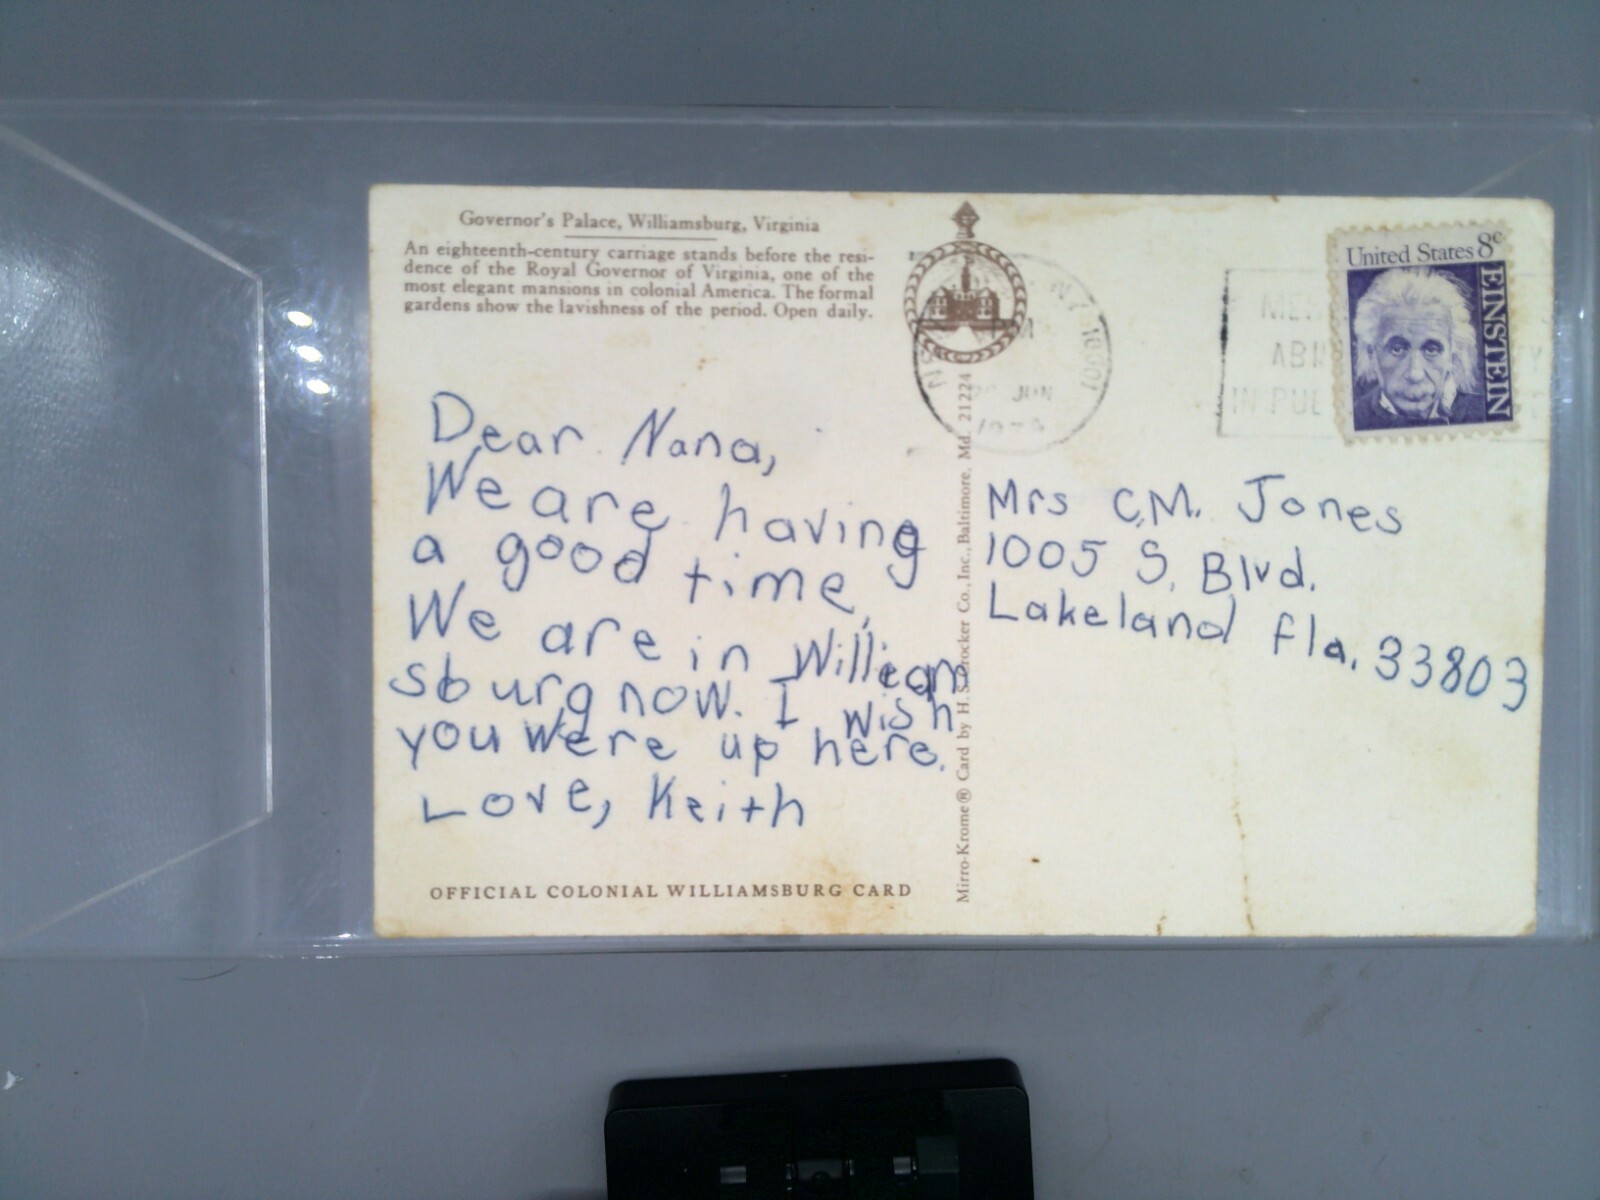 Governor's Palace, Williamsburg, Virginia
An eighteenth-century carriage stands before the resi-
dence of the Royal Governor of Virginia, one of the
most elegant mansions in colonial America. The formal
gardens show the lavishness of the period. Open daily.
Dear Nana,
We are having
a good time,
We are in William
sburg now. I wish
you were up here.
Love, Keith
OFFICIAL COLONIAL WILLIAMSBURG CARD
Mirro-Krome® Card by H. S. Crocker Co., Inc., Baltimore, Md. 21224
N.Y. 10001
JUN
United States 8c
EINSTEIN
IN
Mrs C.M. Jones
1005 S. Blvd.
Lakeland Fla. 33803